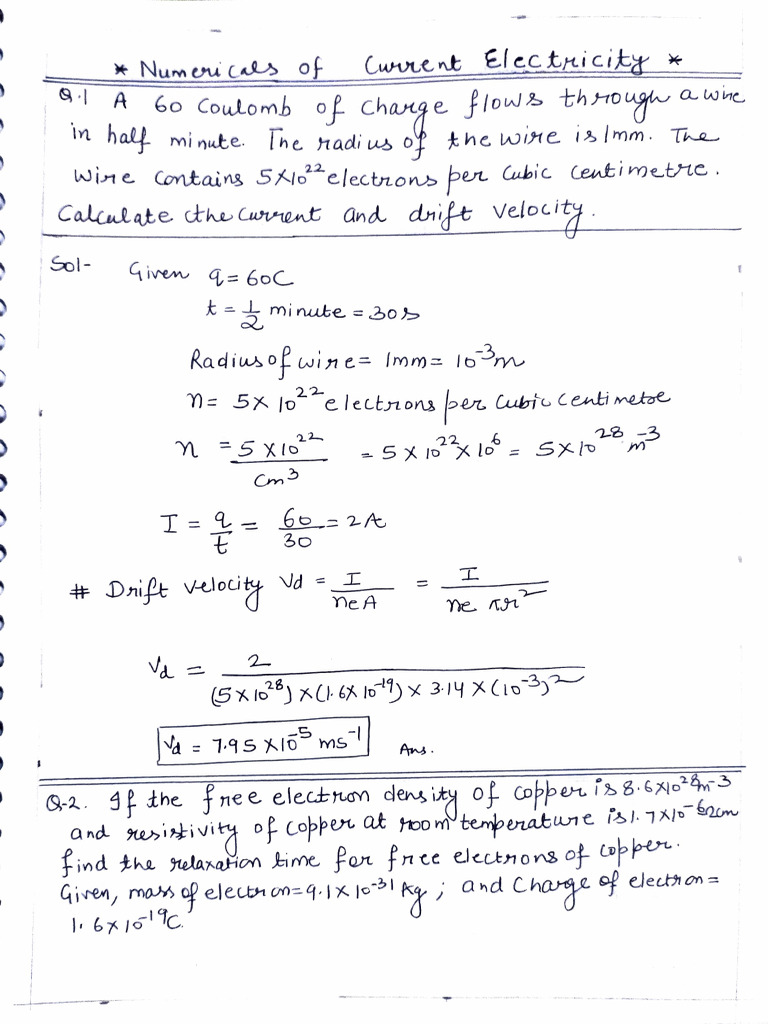 * Numericals of Current Electricity *
Q.1 A 60 Coulomb of charge flows through a wire
in half minute. The radius of the wire is 1mm. The
wire contains 5×10²² electrons per cubic centimetre.
Calculate the current and drift velocity.
Sol- Given q = 60C
t = 1/2 minute = 30s
Radius of wire = 1mm = 10⁻³m
n = 5× 10²² electrons per cubic centimetre
n = 5 ×10²²/cm³ = 5 × 10²² × 10⁶ = 5×10²⁸ m⁻³
I = q/t = 60/30 = 2A
# Drift velocity Vd = I/neA = I/ne πr²
Vd = 2/(5×10²⁸) ×(1.6× 10⁻¹⁹) × 3.14 ×(10⁻³)²
Vd = 7.95 ×10⁻⁵ ms⁻¹ Ans.
Q-2. If the free electron density of copper is 8.6×10²⁸m⁻³
and resistivity of copper at room temperature is 1.7×10⁻⁶Ωcm
find the relaxation time for free electrons of copper.
Given, mass of electron=9.1×10⁻³¹ kg ; and Charge of electron=
1.6×10⁻¹⁹C.